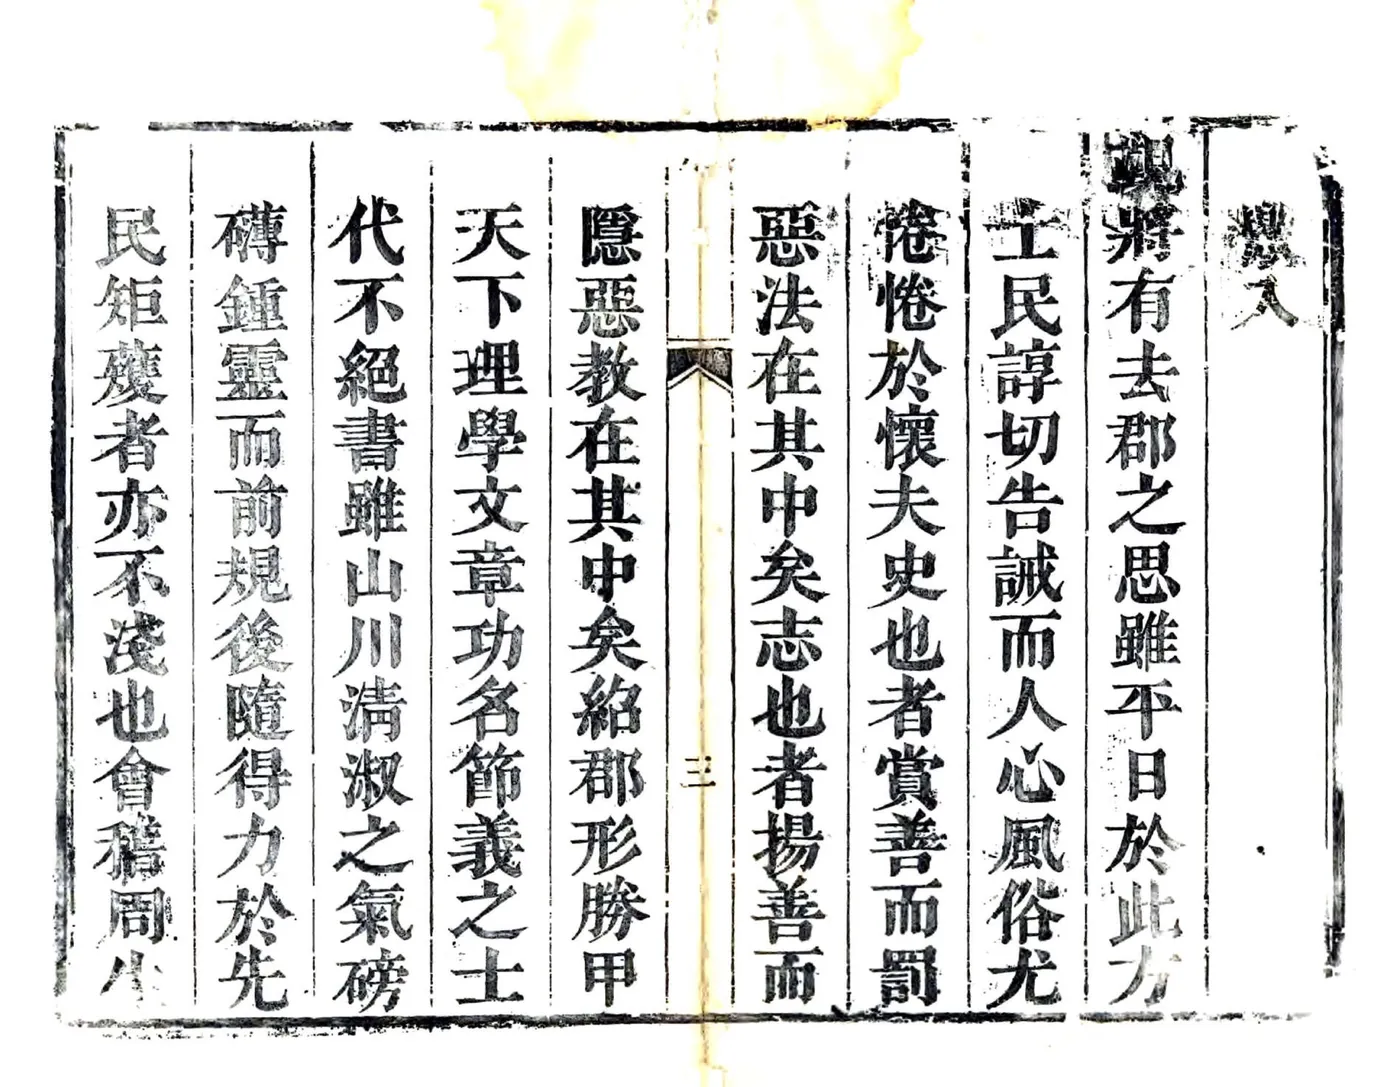 入
覲將有去郡之思雖平日於此方
士民諄切告誡而人心風俗尤
惓惓於懷夫史也者賞善而罰
惡法在其中矣志也者揚善而
三
隱惡教在其中矣紹郡形勝甲
天下理學文章功名節義之士
代不絕書雖山川淸淑之氣磅
礴鍾靈而前規後隨得力於先
民矩矱者亦不淺也會稽周